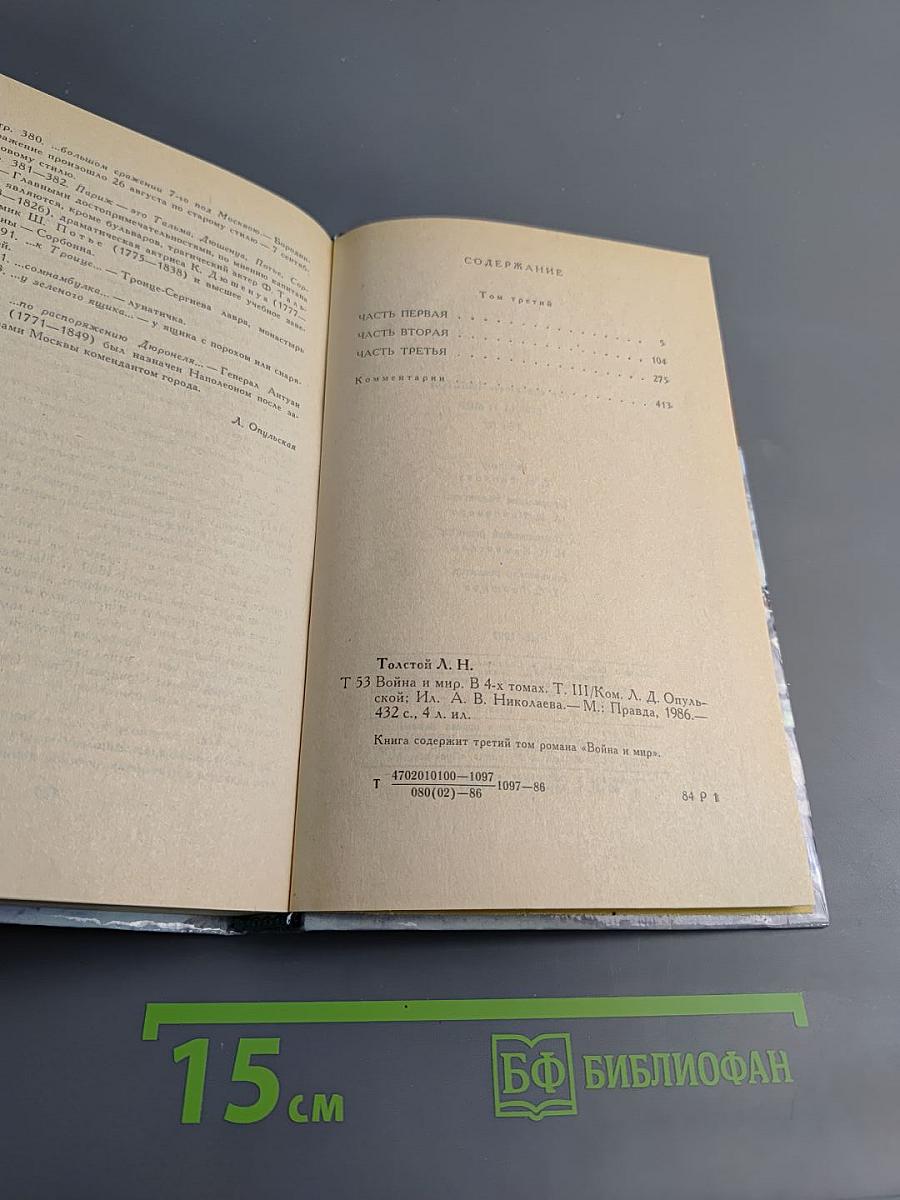 тр. 380. ...большом сражении 7-го под Москвою.— Бородин-
ражение произошло 26 августа по старому стилю — 7 сентяб-
овому стилю.
381—382. Париж — это Тальма, Дюшенуа, Потье, Сор-
— Главными достопримечательностями, по мнению капитана
являются, кроме бульваров, трагический актер Ф. Таль-
—1826), драматическая актриса К. Дюшенуа (1777—
мик Ш. Потье (1775—1838) и высшее учебное заве-
ны — Сорбонна.
91. ...к Троице... — Троице-Сергиева лавра, монастырь
ей.
1. ...сомнамбулка... — лунатичка.
3. ...у зеленого ящика... — у ящика с порохом или снаря-
...по распоряжению Дюронеля... — Генерал Антуан
(1771—1849) был назначен Наполеоном после за-
ами Москвы комендантом города.
Л. Опульская
СОДЕРЖАНИЕ
Том третий
ЧАСТЬ ПЕРВАЯ . . . . . . . . . . . 5
ЧАСТЬ ВТОРАЯ . . . . . . . . . . . 104
ЧАСТЬ ТРЕТЬЯ . . . . . . . . . . . 275
Комментарии . . . . . . . . . . . 413
Толстой Л. Н.
Т 53 Война и мир. В 4-х томах. Т. III/Ком. Л. Д. Опуль-
ской; Ил. А. В. Николаева.— М.: Правда, 1986.—
432 с., 4 л. ил.
Книга содержит третий том романа «Война и мир».
Т 4702010100—1097
080(02)—86 1097—86
84 Р 1
15 см
БФ БИБЛИОФАН